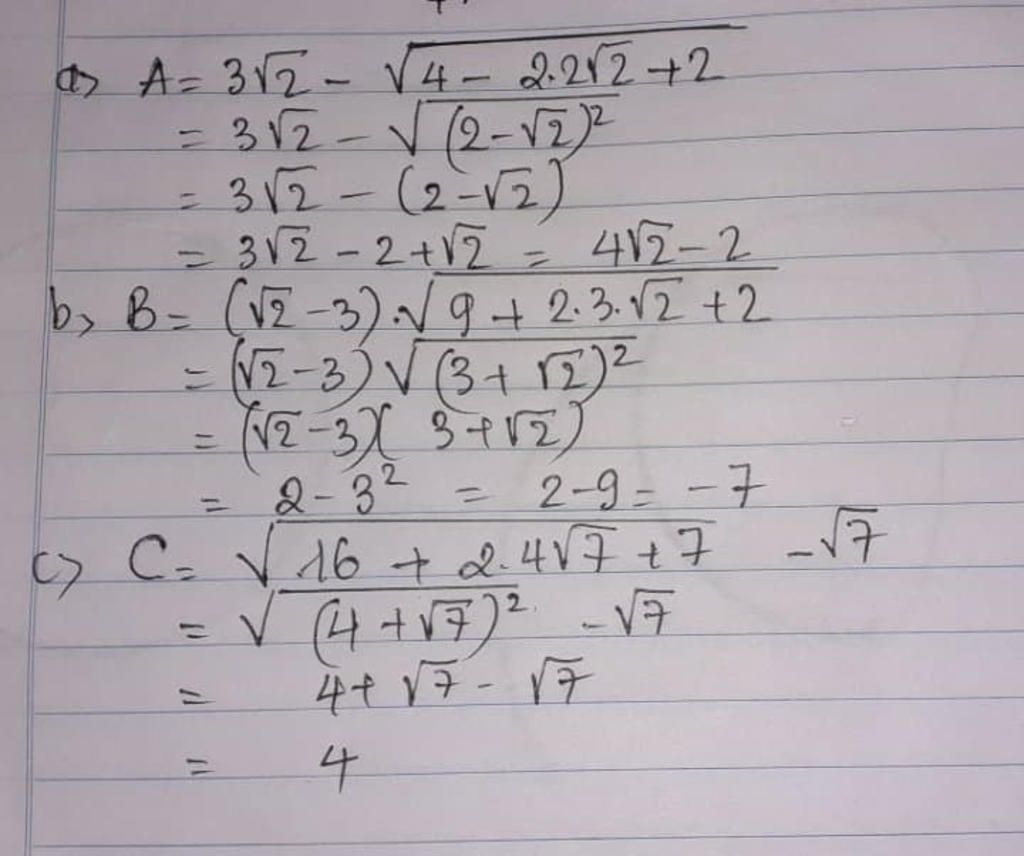 a> A = 3√2 - √(4 - 2.2√2 + 2)
= 3√2 - √(2-√2)²
= 3√2 - (2-√2)
= 3√2 - 2 + √2 = 4√2 - 2
b> B = (√2 - 3).√(9 + 2.3.√2 + 2)
= (√2-3)√(3 + √2)²
= (√2-3)(3+√2)
= 2 - 3² = 2-9 = -7
c> C = √(16 + 2.4√7 + 7) - √7
= √(4 + √7)² - √7
= 4+ √7 - √7
= 4